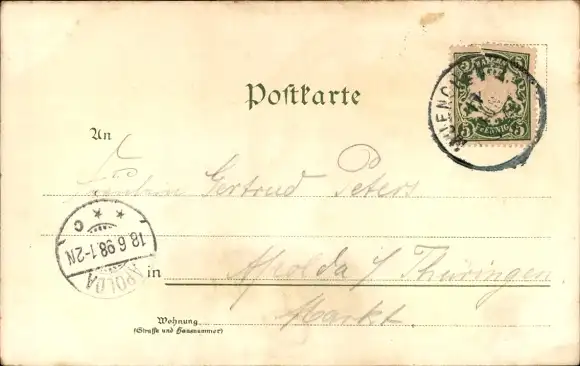 BAYERN
5 5
PFENNIG
MUENCHEN
17
Postkarte
An
Fräulein Gertrud Peters
APOLDA
18.6.98.1-2N
* *
C
in
Apolda i/ Thüringen
Markt.
Wohnung
(Straße und Hausnummer)